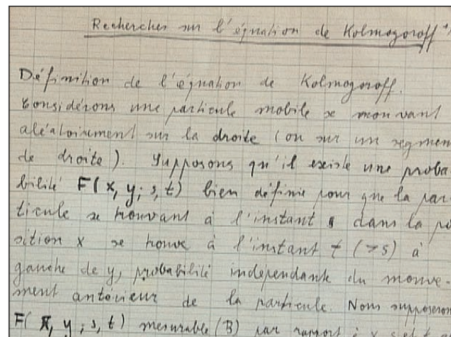 Recherches sur l'équation de Kolmogoroff
Définition de l'équation de Kolmogoroff.
Considérons une particule mobile se mouvant
aléatoirement sur la droite (ou sur un segmen
de droite). Supposons qu'il existe une proba-
bilité F(x, y; s, t) bien définie pour que la par-
ticule se trouvant à l'instant s dans la po
sition x se trouve à l'instant t (>s) à
gauche de y, probabilité indépendante du mouve-
ment antérieur de la particule. Nous supposerons
F(x, y; s, t) mesurable (B) par rapport à x, s et t